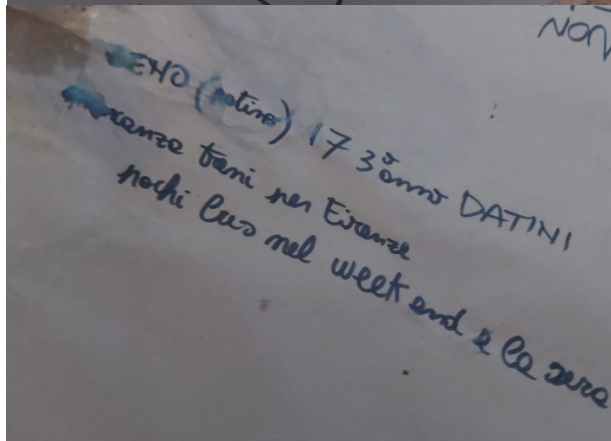 NON
(patino) 17 3° anno DATINI
treni per Firenze
pochi bus nel week end e la sera